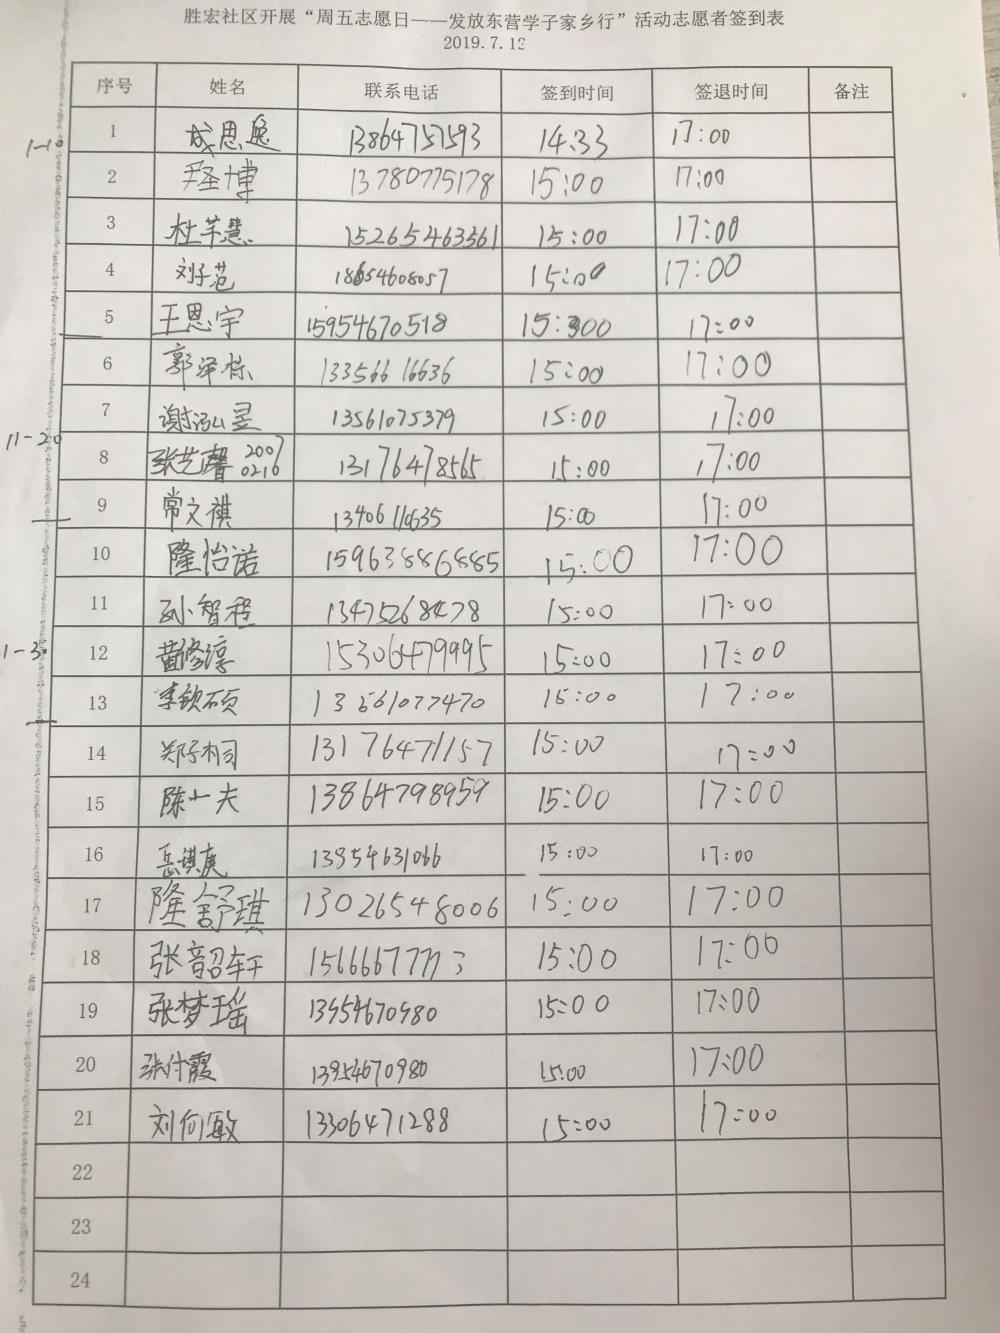 胜宏社区开展“周五志愿日——发放东营学子家乡行”活动志愿者签到表
2019.7.12
序号 姓名 联系电话 签到时间 签退时间 备注
1-10
1 成思逸 13864757593 14:33 17:00
2 博 13780775178 15:00 17:00
3 杜芊慧 15265463361 15:00 17:00
4 刘子范 18654608057 15:00 17:00
5 王恩宇 15954670518 15:300 17:00
6 郭泽栋 13356616636 15:00 17:00
7 谢泓昱 13561075379 15:00 17:00
11-20
8 张艺馨 20070216 13176478565 15:00 17:00
9 常文祺 13406110635 15:00 17:00
10 隆怡诺 15963886885 15:00 17:00
11 孙智程 13475268478 15:00 17:00
1-30
12 黄修淳 15306479995 15:00 17:00
13 李钦硕 13561077470 15:00 17:00
14 郑子桐 13176471157 15:00 17:00
15 陈一夫 13864798959 15:00 17:00
16 岳琪 13954631066 15:00 17:00
17 隆舒琪 13026548006 15:00 17:00
18 张韶轩 15:00 17:00
19 张梦瑶 13954670980 15:00 17:00
20 张付霞 13954670980 15:00 17:00
21 刘向敏 13306471288 15:00 17:00
22
23
24